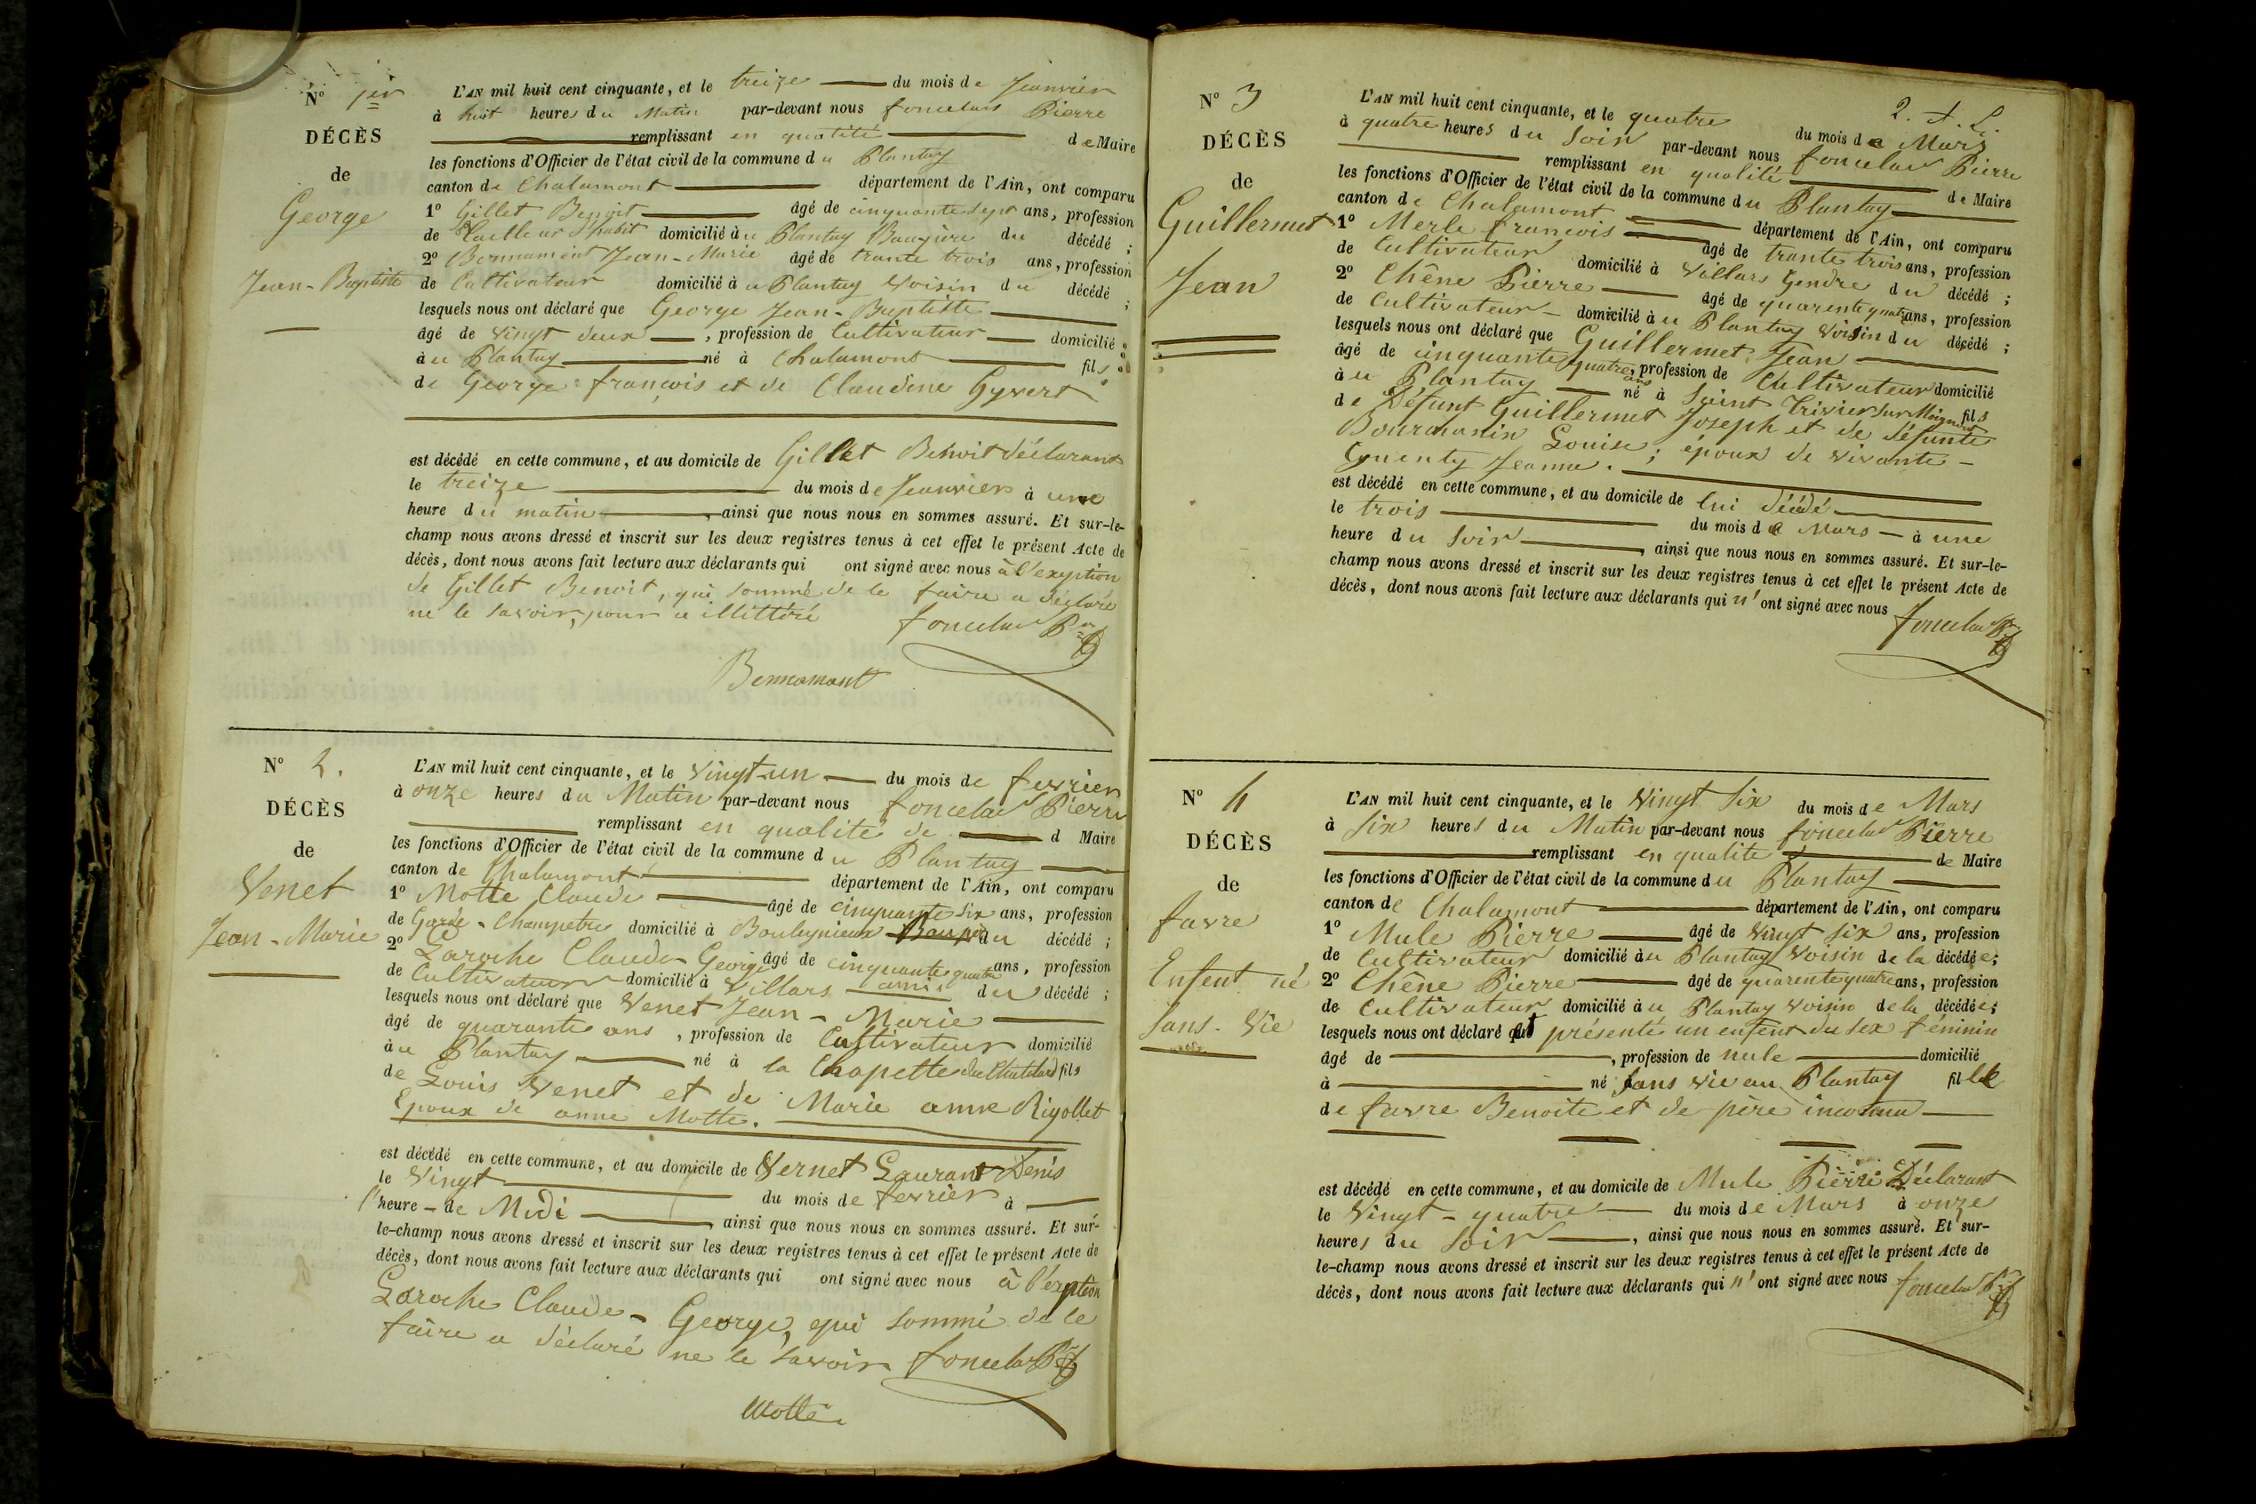 N° 1er
DÉCÈS
de
George
Jean-Baptiste
L'AN mil huit cent cinquante, et le treize du mois de Jeanvier
à huit heures du Matin par-devant nous foncelas Pierre
remplissant en qualité de Maire
les fonctions d'Officier de l'état civil de la commune du Plantay
canton de Chalamont département de l'Ain, ont comparu
1° Gillet Benoit âgé de cinquante sept ans, profession
de tailleur d'habit domicilié au Plantay du décédé ;
2° Bonnamant Jean-Marie âgé de trante trois ans, profession
de Cultivateur domicilié à u Plantay Voisin du décédé ;
lesquels nous ont déclaré que George Jean-Baptiste
âgé de vingt deux , profession de Cultivateur domicilié
à u Plantay né à Chalamont fils
de George françois et de Claudine Gyvert
est décédé en cette commune, et au domicile de Gillet Benoit déclarant
le treize du mois de Jeanvier à une
heure du matin , ainsi que nous nous en sommes assuré. Et sur-le-
champ nous avons dressé et inscrit sur les deux registres tenus à cet effet le présent Acte de
décès, dont nous avons fait lecture aux déclarants qui ont signé avec nous à l'exeption
de Gillet Benoit, qui sommé de le faire a déclaré
ne le savoir, pour a illittéré foncelas Pre
Bonnamant
N° 2.
DÉCÈS
de
Venet
Jean-Marie
L'AN mil huit cent cinquante, et le Vingt-un du mois de fevrier
à onze heures du Matin par-devant nous foncelas Pierre
remplissant en qualité de d Maire
les fonctions d'Officier de l'état civil de la commune du Plantay
canton de Chalamont département de l'Ain, ont comparu
1° Motte Claude âgé de cinquante six ans, profession
de Garde-Champetre domicilié à Bouleynieux du décédé ;
2° Laroche Claude George âgé de cinquante quatre ans, profession
de Cultivateur domicilié à Villars ami du décédé ;
lesquels nous ont déclaré que Venet Jean-Marie
âgé de quarante ans , profession de Cultivateur domicilié
à u Plantay né à la Chapelle du Chatelard fils
de Louis Venet et de Marie anne Rigollet
Epoux de anne Motte.
est décédé en cette commune, et au domicile de Vernet Laurant Denis
le Vingt du mois de fevrier à
l'heure de Midi , ainsi que nous nous en sommes assuré. Et sur-
le-champ nous avons dressé et inscrit sur les deux registres tenus à cet effet le présent Acte de
décès, dont nous avons fait lecture aux déclarants qui ont signé avec nous à l'exeption
Laroche Claude-George, qui sommé de le
faire a déclaré ne le savoir foncelas Pre
Motte
2. A. L.
N° 3
DÉCÈS
de
Guillermet
Jean
L'AN mil huit cent cinquante, et le quatre du mois de Mars
à quatre heures du Soir par-devant nous foncelas Pierre
remplissant en qualité de Maire
les fonctions d'Officier de l'état civil de la commune du Plantay
canton de Chalamont département de l'Ain, ont comparu
1° Merle francois âgé de trante trois ans, profession
de Cultivateur domicilié à Villars Gendre du décédé ;
2° Chêne Pierre âgé de quarente quatre ans, profession
de Cultivateur domicilié à u Plantay Voisin du décédé ;
lesquels nous ont déclaré que Guillermet Jean
âgé de cinquante quatre ans, profession de Cultivateur domicilié
à u Plantay né à Saint Trivier sur Moignant fils
de Défunt Guillermet Joseph et de défunte
Bourdonin Louise ; époux de vivante
Guenty Jeanne.
est décédé en cette commune, et au domicile de lui décédé
le trois du mois de Mars à une
heure du Soir , ainsi que nous nous en sommes assuré. Et sur-le-
champ nous avons dressé et inscrit sur les deux registres tenus à cet effet le présent Acte de
décès, dont nous avons fait lecture aux déclarants qui n'ont signé avec nous foncelas Pre
N° 4
DÉCÈS
de
favre
Enfent né
Sans-Vie
L'AN mil huit cent cinquante, et le Vingt Six du mois de Mars
à Six heures du Matin par-devant nous foncelas Pierre
remplissant en qualité de Maire
les fonctions d'Officier de l'état civil de la commune du Plantay
canton de Chalamont département de l'Ain, ont comparu
1° Mule Pierre âgé de Vingt Six ans, profession
de Cultivateur domicilié au Plantay Voisin de la décédée;
2° Chêne Pierre âgé de quarente quatre ans, profession
de Cultivateur domicilié à u Plantay Voisin de la décédée;
lesquels nous ont déclaré présenté un enfent du sex féminin
âgé de , profession de nule domicilié
à né sans vie au Plantay fille
de favre Benoite et de père inconnu
est décédé en cette commune, et au domicile de Mule Pierre Déclarant
le Vingt-quatre du mois de Mars à onze
heures du Soir , ainsi que nous nous en sommes assuré. Et sur-
le-champ nous avons dressé et inscrit sur les deux registres tenus à cet effet le présent Acte de
décès, dont nous avons fait lecture aux déclarants qui n'ont signé avec nous foncelas Pre